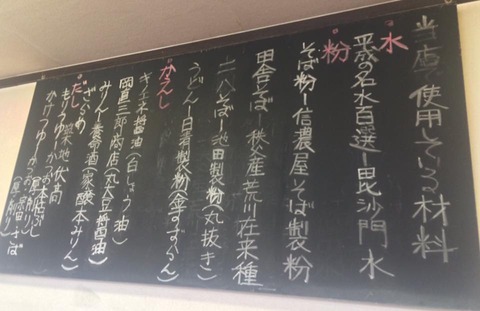 当店で使用している材料
水
平成の名水百選ー毘沙門水
粉
そば粉ー信濃屋そば製粉
田舎そばー秩父産荒川在来種
二八そばー池田製粉(丸抜き)
うどんー日清製粉(金すずらん)
かえし
キノエネ醤油(白しょうゆ油)
岡直三郎商店(丸大豆醤油)
ざらめ
みりんー養命酒(家醸本みりん)
だし
もりつゆー
かけつゆーかつお